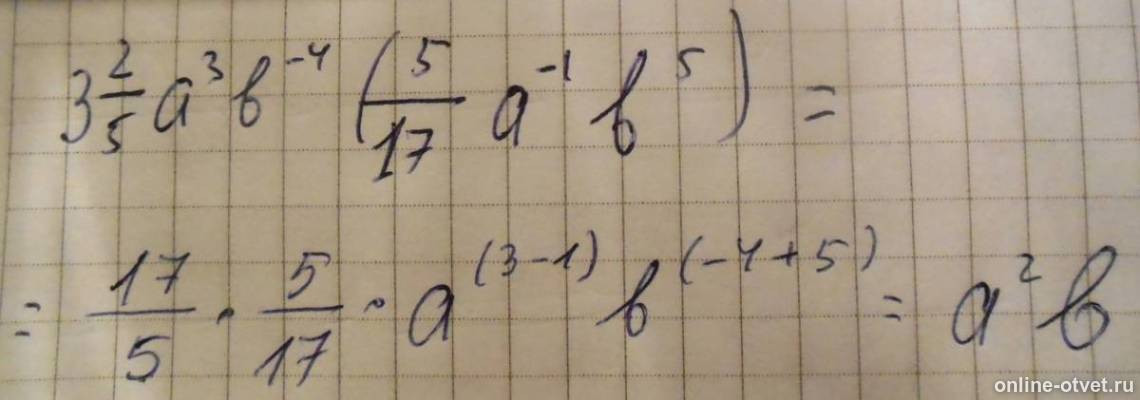 3 2/5 a³ b⁻⁴ (5/17 a⁻¹ b⁵) =
= 17/5 · 5/17 · a⁽³⁻¹⁾ b⁽⁻⁴⁺⁵⁾ = a² b
online-otvet.ru